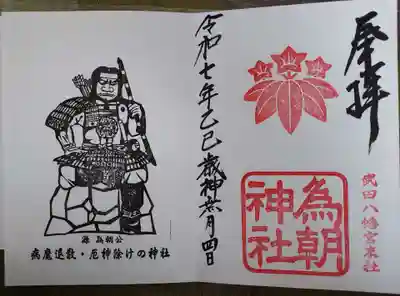 奉拝
武田八幡宮末社
為朝
神社
令和七年乙巳歳神無月四日
源 為朝公
病魔退散・厄神除けの神社